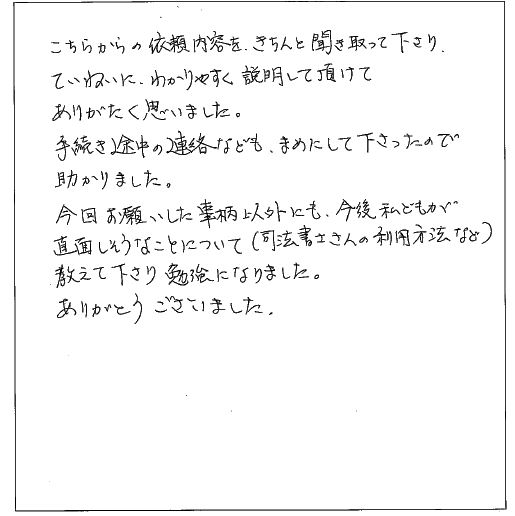 こちらからの依頼内容を、きちんと聞き取って下さり、
ていねいに、わかりやすく説明して頂けて
ありがたく思いました。
手続き途中の連絡なども、まめにして下さったので
助かりました。
今回お願いした事柄以外にも、今後私どもが
直面しそうなことについて(司法書士さんの利用方法など)
教えて下さり勉強になりました。
ありがとうございました.